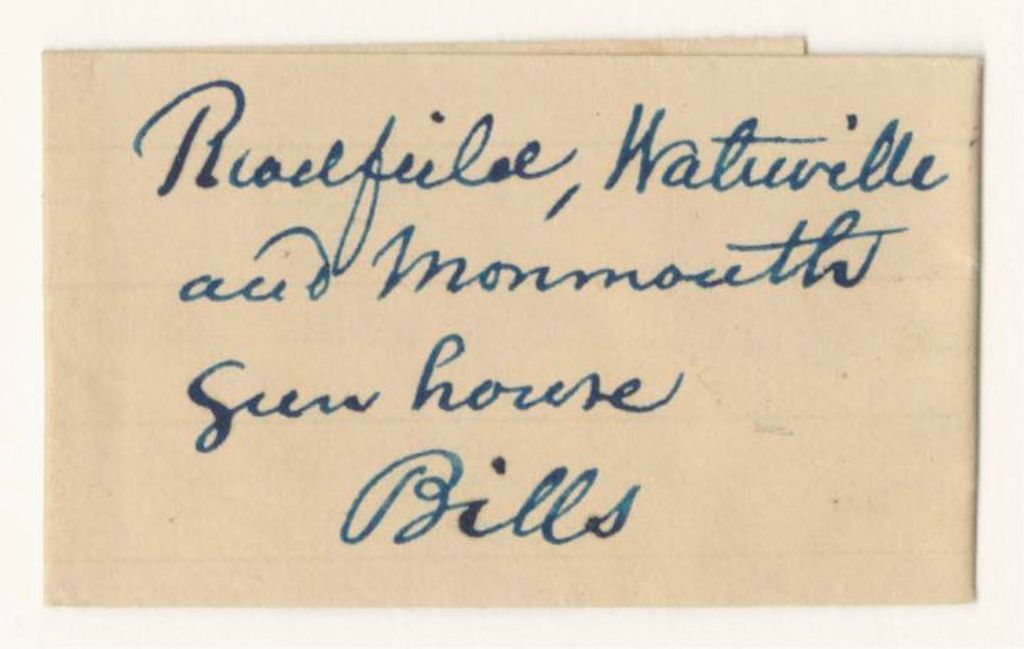 Readfield, Waterville
and Monmouth
Gun house
Bills